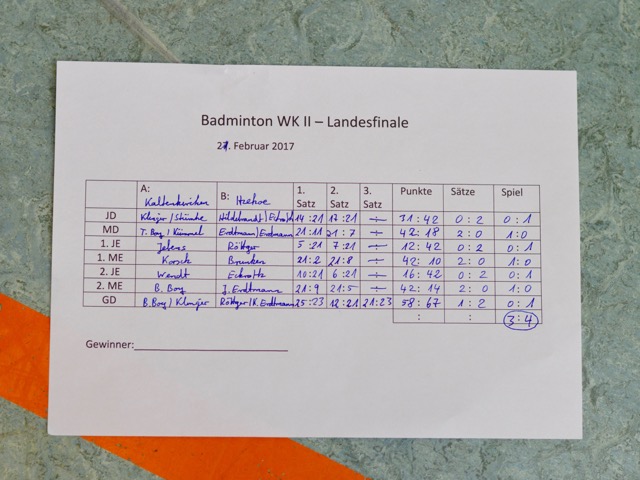 Badminton WK II – Landesfinale
21. Februar 2017
A: Kaltenkirchen B: Itzehoe 1. Satz 2. Satz 3. Satz Punkte Sätze Spiel
JD Klinjer / Stümke Hildebrandt / Eckholtz 14:21 17:21 ÷ 31:42 0:2 0:1
MD T. Boy / Kümmel Erdtmann / Erdtmann 21:11 21:7 ÷ 42:18 2:0 1:0
1. JE Jebens Röttger 5:21 7:21 ÷ 12:42 0:2 0:1
1. ME Korsch Brunken 21:2 21:8 ÷ 42:10 2:0 1:0
2. JE Wendt Eckholtz 10:21 6:21 ÷ 16:42 0:2 0:1
2. ME B. Boy J. Erdtmann 21:9 21:5 ÷ 42:14 2:0 1:0
GD B. Boy / Klinjer Röttger / K. Erdtmann 25:23 12:21 21:23 58:67 1:2 0:1
: : 3:4
Gewinner: